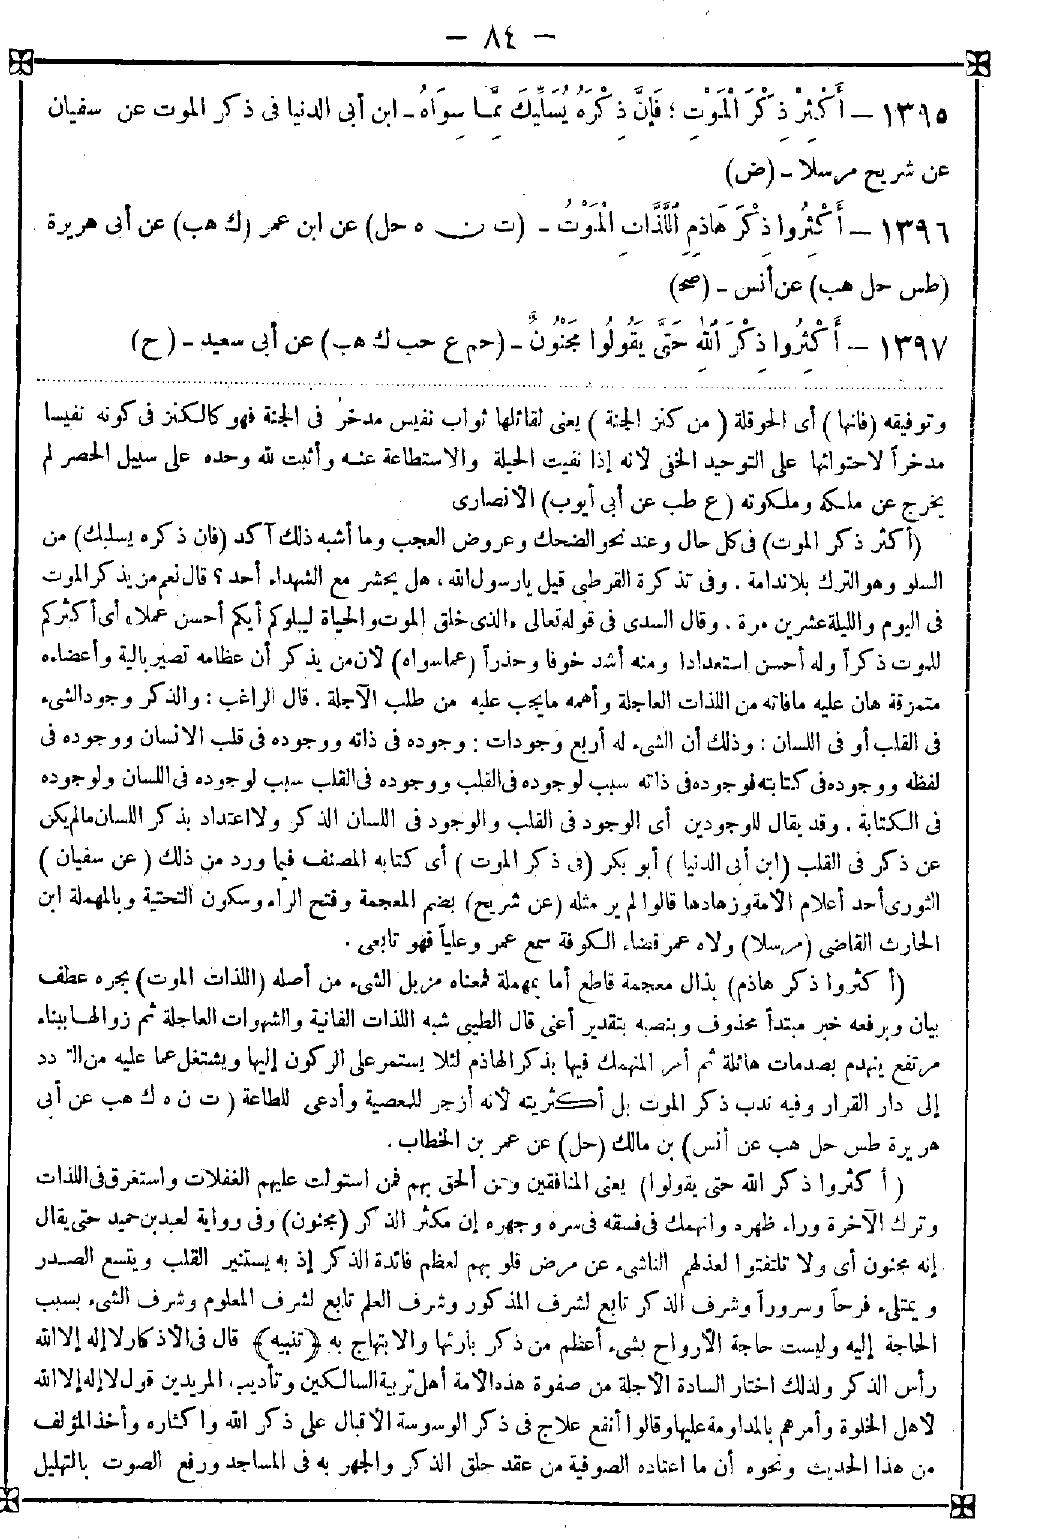 — ٨٤ —
١٣٩٥ — أَكْثِرْ ذِكْرَ الْمَوْتِ ؛ فَإِنَّ ذِكْرَهُ يُسَلِّيكَ مِمَّا سِوَاهُ ـ ابن أبى الدنيا فى ذكر الموت عن سفيان
عن شريح مرسلا ـ (ض)
١٣٩٦ — أَكْثِرُوا ذِكْرَ هَاذِمِ اللَّذَّاتِ الْمَوْتُ ـ (ت ن ه حل) عن ابن عمر (ك هب) عن أبى هريرة
(طس حل هب) عن أنس ـ (صح)
١٣٩٧ — أَكْثِرُوا ذِكْرَ اللهِ حَتَّى يَقُولُوا مَجْنُونٌ ـ (حم ع حب ك هب) عن أبى سعيد ـ (ح)
وتوفيقه (فانها) أى الحوقلة (من كنز الجنة) يعنى لقائلها ثواب نفيس مدخر فى الجنة فهو كالكنز فى كونه نفيسا
مدخراً لاحتوائها على التوحيد الخفى لأنه إذا نفيت الحيلة والاستطاعة عنه وأثبت لله وحده على سبيل الحصر لم
يخرج عن ملكه وملكوته (ع طب عن أبى أيوب) الأنصارى
(أكثر ذكر الموت) فى كل حال وعند نحو الضحك وعروض العجب وما أشبه ذلك آكد (فان ذكره يسليك) من
السلو وهو الترك بلاندامة . وفى تذكرة القرطبى قيل يارسول الله ، هل يحشر مع الشهداء أحد ؟ قال نعم من يذكر الموت
فى اليوم والليلة عشرين مرة . وقال السدى فى قوله تعالى «الذى خلق الموت والحياة ليبلوكم أيكم أحسن عملا» أى أكثركم
للموت ذكراً وله أحسن استعدادا ومنه أشد خوفا وحذراً (عما سواه) لأن من يذكر أن عظامه تصير بالية وأعضاءه
متمزقة هان عليه مافاته من اللذات العاجلة وأهمه مايجب عليه من طلب الآجلة . قال الراغب : والذكر وجود الشىء
فى القلب أو فى اللسان : وذلك أن الشىء له أربع وجودات : وجوده فى ذاته ووجوده فى قلب الانسان ووجوده فى
لفظه ووجوده فى كتابته فوجوده فى ذاته سبب لوجوده فى القلب ووجوده فى القلب سبب لوجوده فى اللسان ولوجوده
فى الكتابة . وقد يقال للوجودين أى الوجود فى القلب والوجود فى اللسان الذكر ولا اعتداد بذكر اللسان مالم يكن
عن ذكر فى القلب (ابن أبى الدنيا) أبو بكر (فى ذكر الموت) أى كتابه المصنف فيما ورد من ذلك (عن سفيان)
الثورى أحد أعلام الأمة وزهادها قالوا لم ير مثله (عن شريح) بضم المعجمة وفتح الراء وسكون التحتية وبالمهملة ابن
الحارث القاضى (مرسلا) ولاه عمر قضاء الكوفة سمع عمر وعلياً فهو تابعى .
(أكثروا ذكر هاذم) بذال معجمة قاطع أما بمهملة فمعناه مزيل الشىء من أصله (اللذات الموت) بجره عطف
بيان وبرفعه خبر مبتدأ محذوف وبنصبه بتقدير أعنى قال الطيبى شبه اللذات الفانية والشهوات العاجلة ثم زوالها ببناء
مرتفع ينهدم بصدمات هائلة ثم أمر المنهمك فيها بذكر الهاذم لئلا يستمر على الركون إليها ويشتغل عما عليه من دد
إلى دار القرار وفيه ندب ذكر الموت بل أكثريته لأنه أزجر للمعصية وأدعى للطاعة (ت ن ه ك هب عن أبى
هريرة طس حل هب عن أنس) بن مالك (حل) عن عمر بن الخطاب .
(أكثروا ذكر الله حتى يقولوا) يعنى المنافقين ومن ألحق بهم فمن استولت عليهم الغفلات واستغرق فى اللذات
وترك الآخرة وراء ظهره وانهمك فى فسقه فى سره وجهره إن مكثر الذكر (مجنون) وفى رواية لعبد بن حميد حتى يقال
إنه مجنون أى ولا تلتفتوا لعذلهم الناشىء عن مرض قلوبهم لعظم فائدة الذكر إذ به يستنير القلب ويتسع الصدر
ويمتلىء فرحاً وسروراً وشرف الذكر تابع لشرف المذكور وشرف العلم تابع لشرف المعلوم وشرف الشىء بسبب
الحاجة إليه وليست حاجة الأرواح بشىء أعظم من ذكر بارئها والابتهاج به ﴿تنبيه﴾ قال فى الأذكار لا إله إلا الله
رأس الذكر ولذلك اختار السادة الأجلة من صفوة هذه الأمة أهل تربية السالكين وتأديب المريدين قول لا إله إلا الله
لأهل الخلوة وأمرهم بالمداومة عليها وقالوا أنفع علاج فى ذكر الوسوسة الاقبال على ذكر الله واكثاره وأخذ المؤلف
من هذا الحديث ونحوه أن ما اعتاده الصوفية من عقد حلق الذكر والجهر به فى المساجد ورفع الصوت بالتهليل